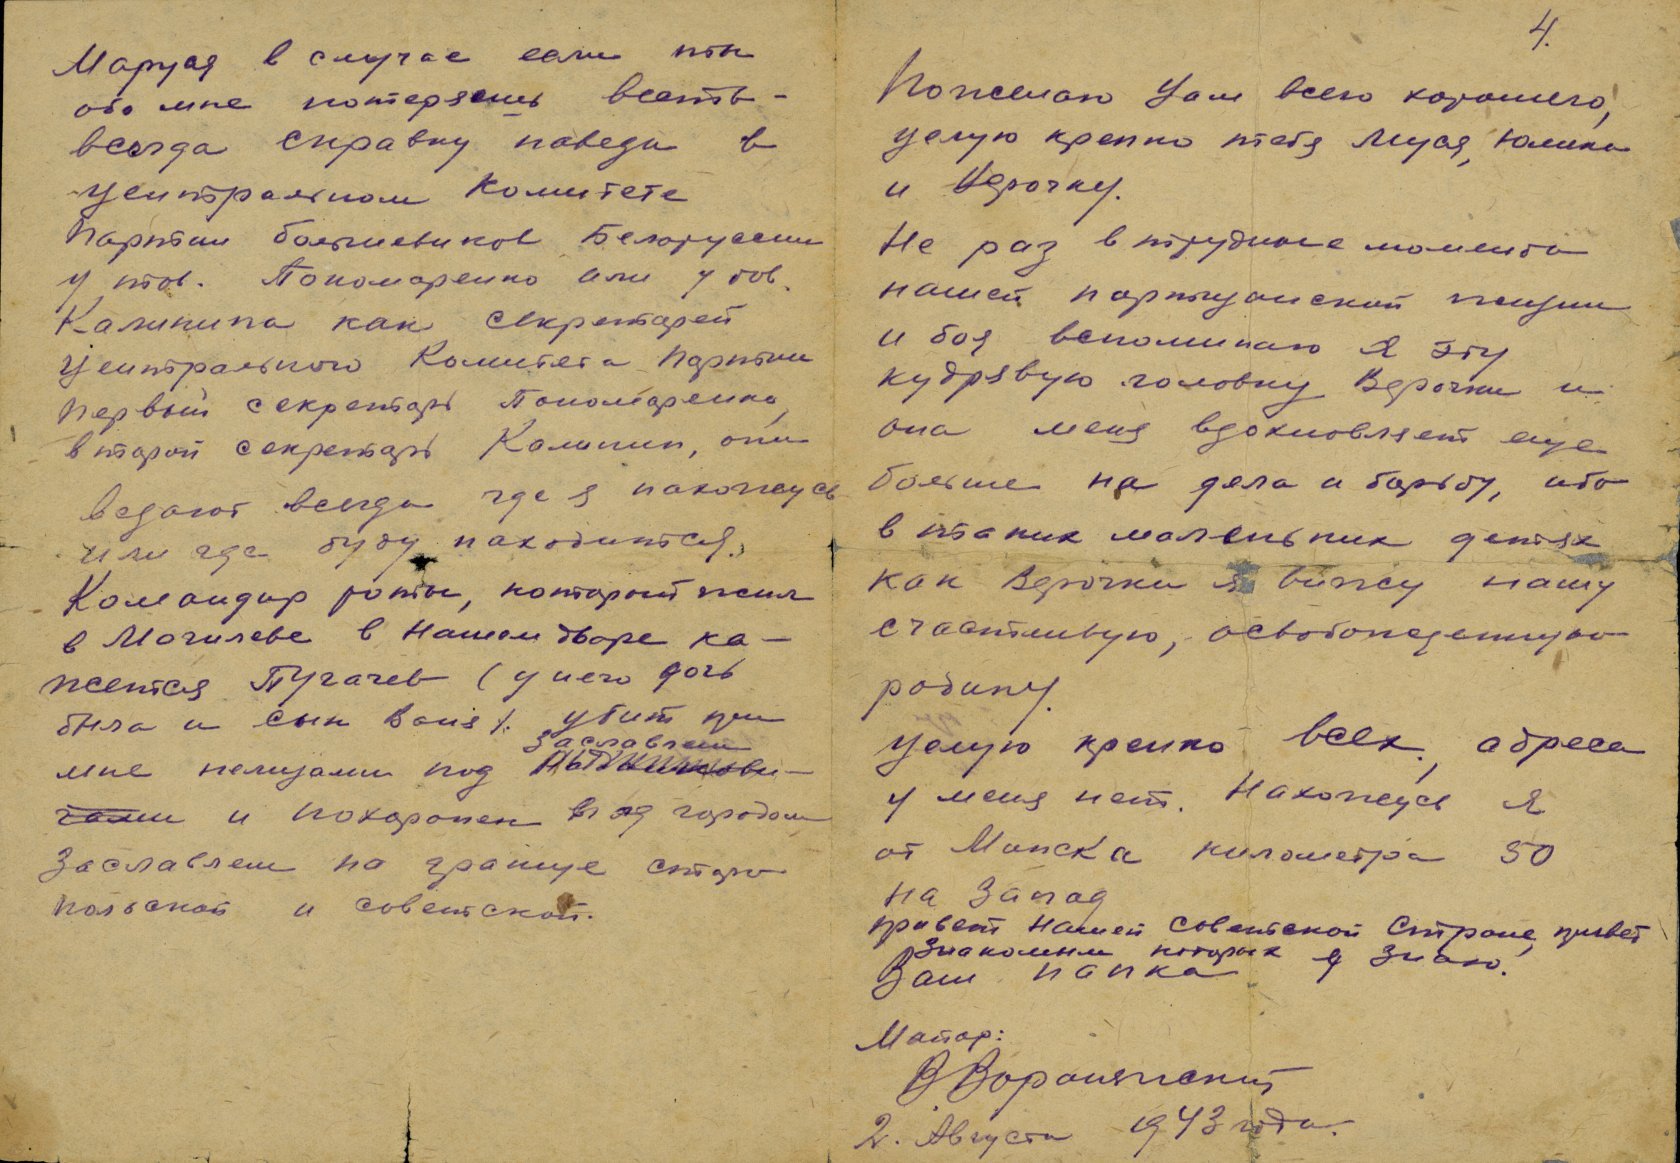 Маруся в случае если ты
обо мне потеряешь весть-
всегда справку наведи в
центральном Комитете
Партии большевиков Белоруссии
у тов. Пономаренко или у тов.
Калинина как секретарей
центрального Комитета партии
первый секретарь Пономаренко,
второй секретарь Калинин, они
ведают всегда где я нахожусь
или где буду находится.
Командир роты, который жил
в Могилеве в нашем дворе ка-
жется Пугачев (у него дочь
была и сын Ваня). убит при
Заславлем
мне немцами под
чами и похоронен под городом
Заславлем на границе старо
польской и советской.
4.
Пожелаю Вам всего хорошего,
целую крепко тебя Муся, Юлика
и Верочку.
Не раз в трудные моменты
нашей партизанской жизни
и боя вспоминаю я эту
кудрявую головку Верочки и
она меня вдохновляет еще
больше на дела и борьбу, ибо
в таких маленьких детях
как Верочки я вижу нашу
счастливую, освобожденную
родину.
целую крепко всех, адреса
у меня нет. Нахожусь я
от Минска километра 50
на запад
привет нашей советской стране, привет
знакомым которых я знаю.
Ваш папка
Маиор:
В Воронянский
2. Августа 1943 года.